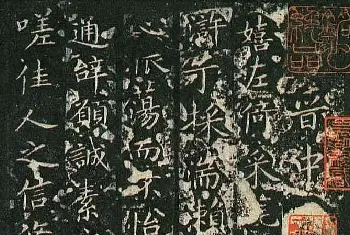 晉中
嬉左倚采
滸兮採湍瀨
心振蕩而不怡
通辭願誠素
嗟佳人之信脩